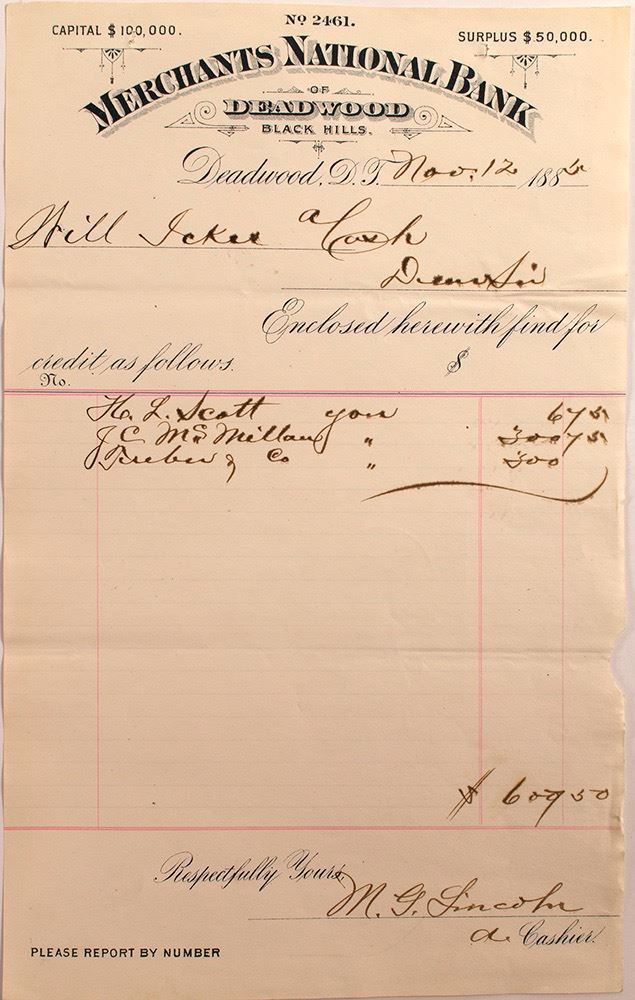 No 2461.
CAPITAL $100,000.
SURPLUS $50,000.
MERCHANTS NATIONAL BANK
OF
DEADWOOD
BLACK HILLS.
Deadwood, D.T. Nov. 12 188
Will a Cash
Dear Sir
Enclosed herewith find for
credit as follows. $
No.
H. L. Scott your 6 75
J C McMillan " 300 75
& Co " 300
$ 607 50
Respectfully Yours,
M. G. Lincoln
a. Cashier.
PLEASE REPORT BY NUMBER